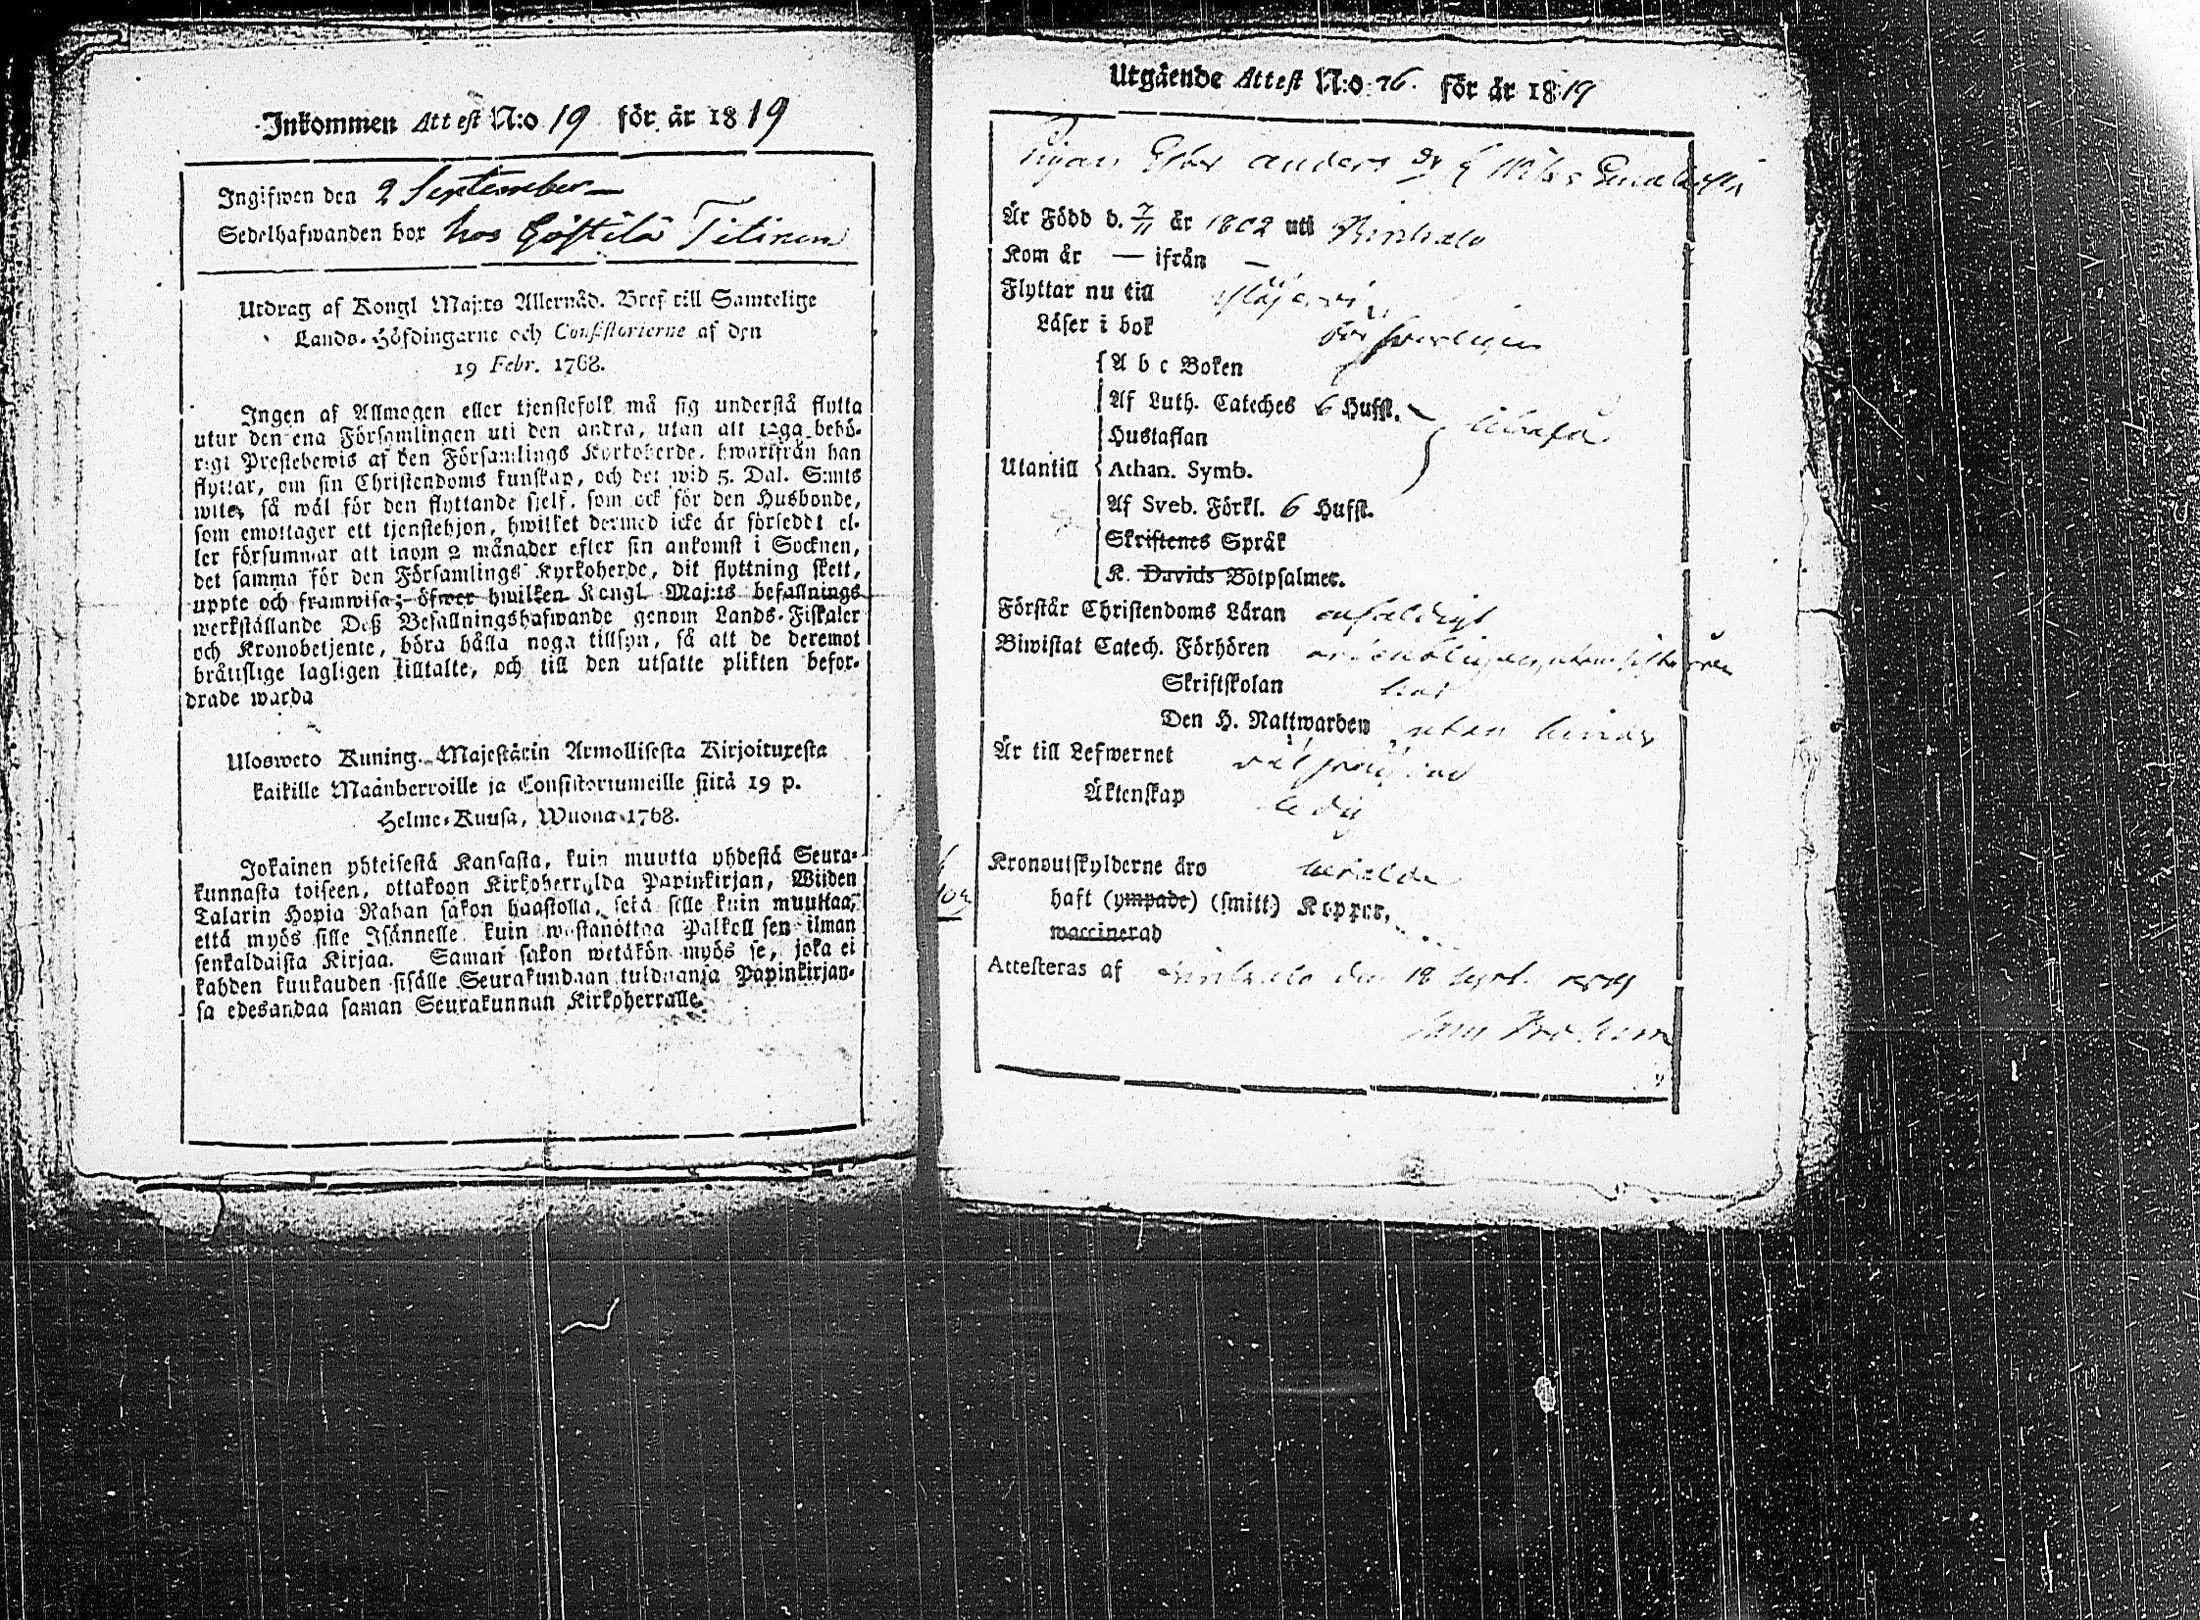 Inkommen Attest N:o 19 för år 1819
Ingifwen den 2 September
Sedelhafwanden bor hos Gästilä Titinen
Utdrag af Kongl Maj:ts Allernåd. Bref till Samtelige
Lands-Höfdingarne och Consistorierne af den
19 Febr. 1768.
Ingen af Allmogen eller tjenstefolk må sig understå flytta
utur den ena Församlingen uti den andra, utan att taga behö-
rigt Prestebewis af den Församlings Kyrkoherde, hwarifrån han
flyttar, om sin Christendoms kunskap, och det wid 5. Dal. S:mts
wite, så wäl för den flyttande sjelf, som ock för den Husbonde,
som emottager ett tjenstehjon, hwilket dermed icke är förseddt el-
ler försummar att inom 2 månader efter sin ankomst i Socknen,
det samma för den Församlings Kyrkoherde, dit flyttning skett,
uppte och framwisa; öfwer hwilken Kongl Maj:ts befallnings
werkställande Deß Befallningshafwande genom Lands-Fiskaler
och Kronobetjente, böra hålla noga tillsyn, så att de deremot
bråttslige lagligen tilltalte, och till den utsatte plikten befor-
drade warda
Uloswето Kuning. Majestätin Armollisesta Kirjoituxesta
kaikille Maanherroille ja Consistoriumeille siitä 19 p.
Helme-Kuusa, Wuona 1768.
Jokainen yhteisestä Kansasta, kuin muutta yhdestä Seura-
kunnasta toiseen, ottakoon Kirkoherralda Papinkirjan, Wiiden
Talarin Hopia Rahan sakon haastolla, sekä sille kuin muuttaa,
että myös sille Isännelle kuin wastanottaa Palkoll sen ilman
senkaldaista Kirjaa. Saman sakon wetäkön myös se, joka ei
kahden kuukauden sisälle Seurakundaan tulduanja Papinkirjan-
sa edesandaa saman Seurakunnan Kirkoherralle.
Utgående Attest N:o 76. för år 1819
Pigan Anders
Är Född d. 7/11 år 1802 uti
Kom år — ifrån —
Flyttar nu till
Läser i bok
A b c Boken
Af Luth. Cateches 6 Hufst.
Hustaflan
Utantill Athan. Symb.
Af Sveb. Förkl. 6 Hufst.
Skriftenes Språk
K. Davids Botpsalmer.
Förstår Christendoms Läran enfaldigt
Biwistat Catech. Förhören
Skriftskolan
Den H. Nattwarden utan hinder
Är till Lefwernet välfrägdad
Äktenskap ledig
Kronoutskylderne äro betalde
haft (ympade) (smitt) Koppor,
waccinerad
Attesteras af den 18 Sept. 1819